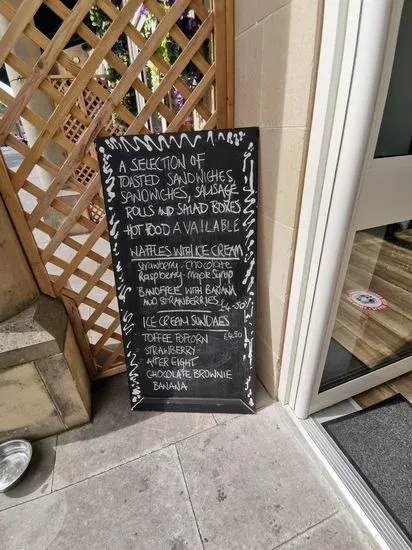 A SELECTION OF
TOASTED SANDWICHES,
SANDWICHES, SAUSAGE
ROLLS AND SALAD BOXES
HOT FOOD AVAILABLE
WAFFLES WITH ICE CREAM
Strawberry - Chocolate
Raspberry - Maple Syrup
BANOFFEE WITH BANANA
AND STRAWBERRIES £4.50
ICE CREAM SUNDAES
TOFFEE POPCORN £4.50
STRAWBERRY
AFTER EIGHT
CHOCOLATE BROWNIE
BANANA